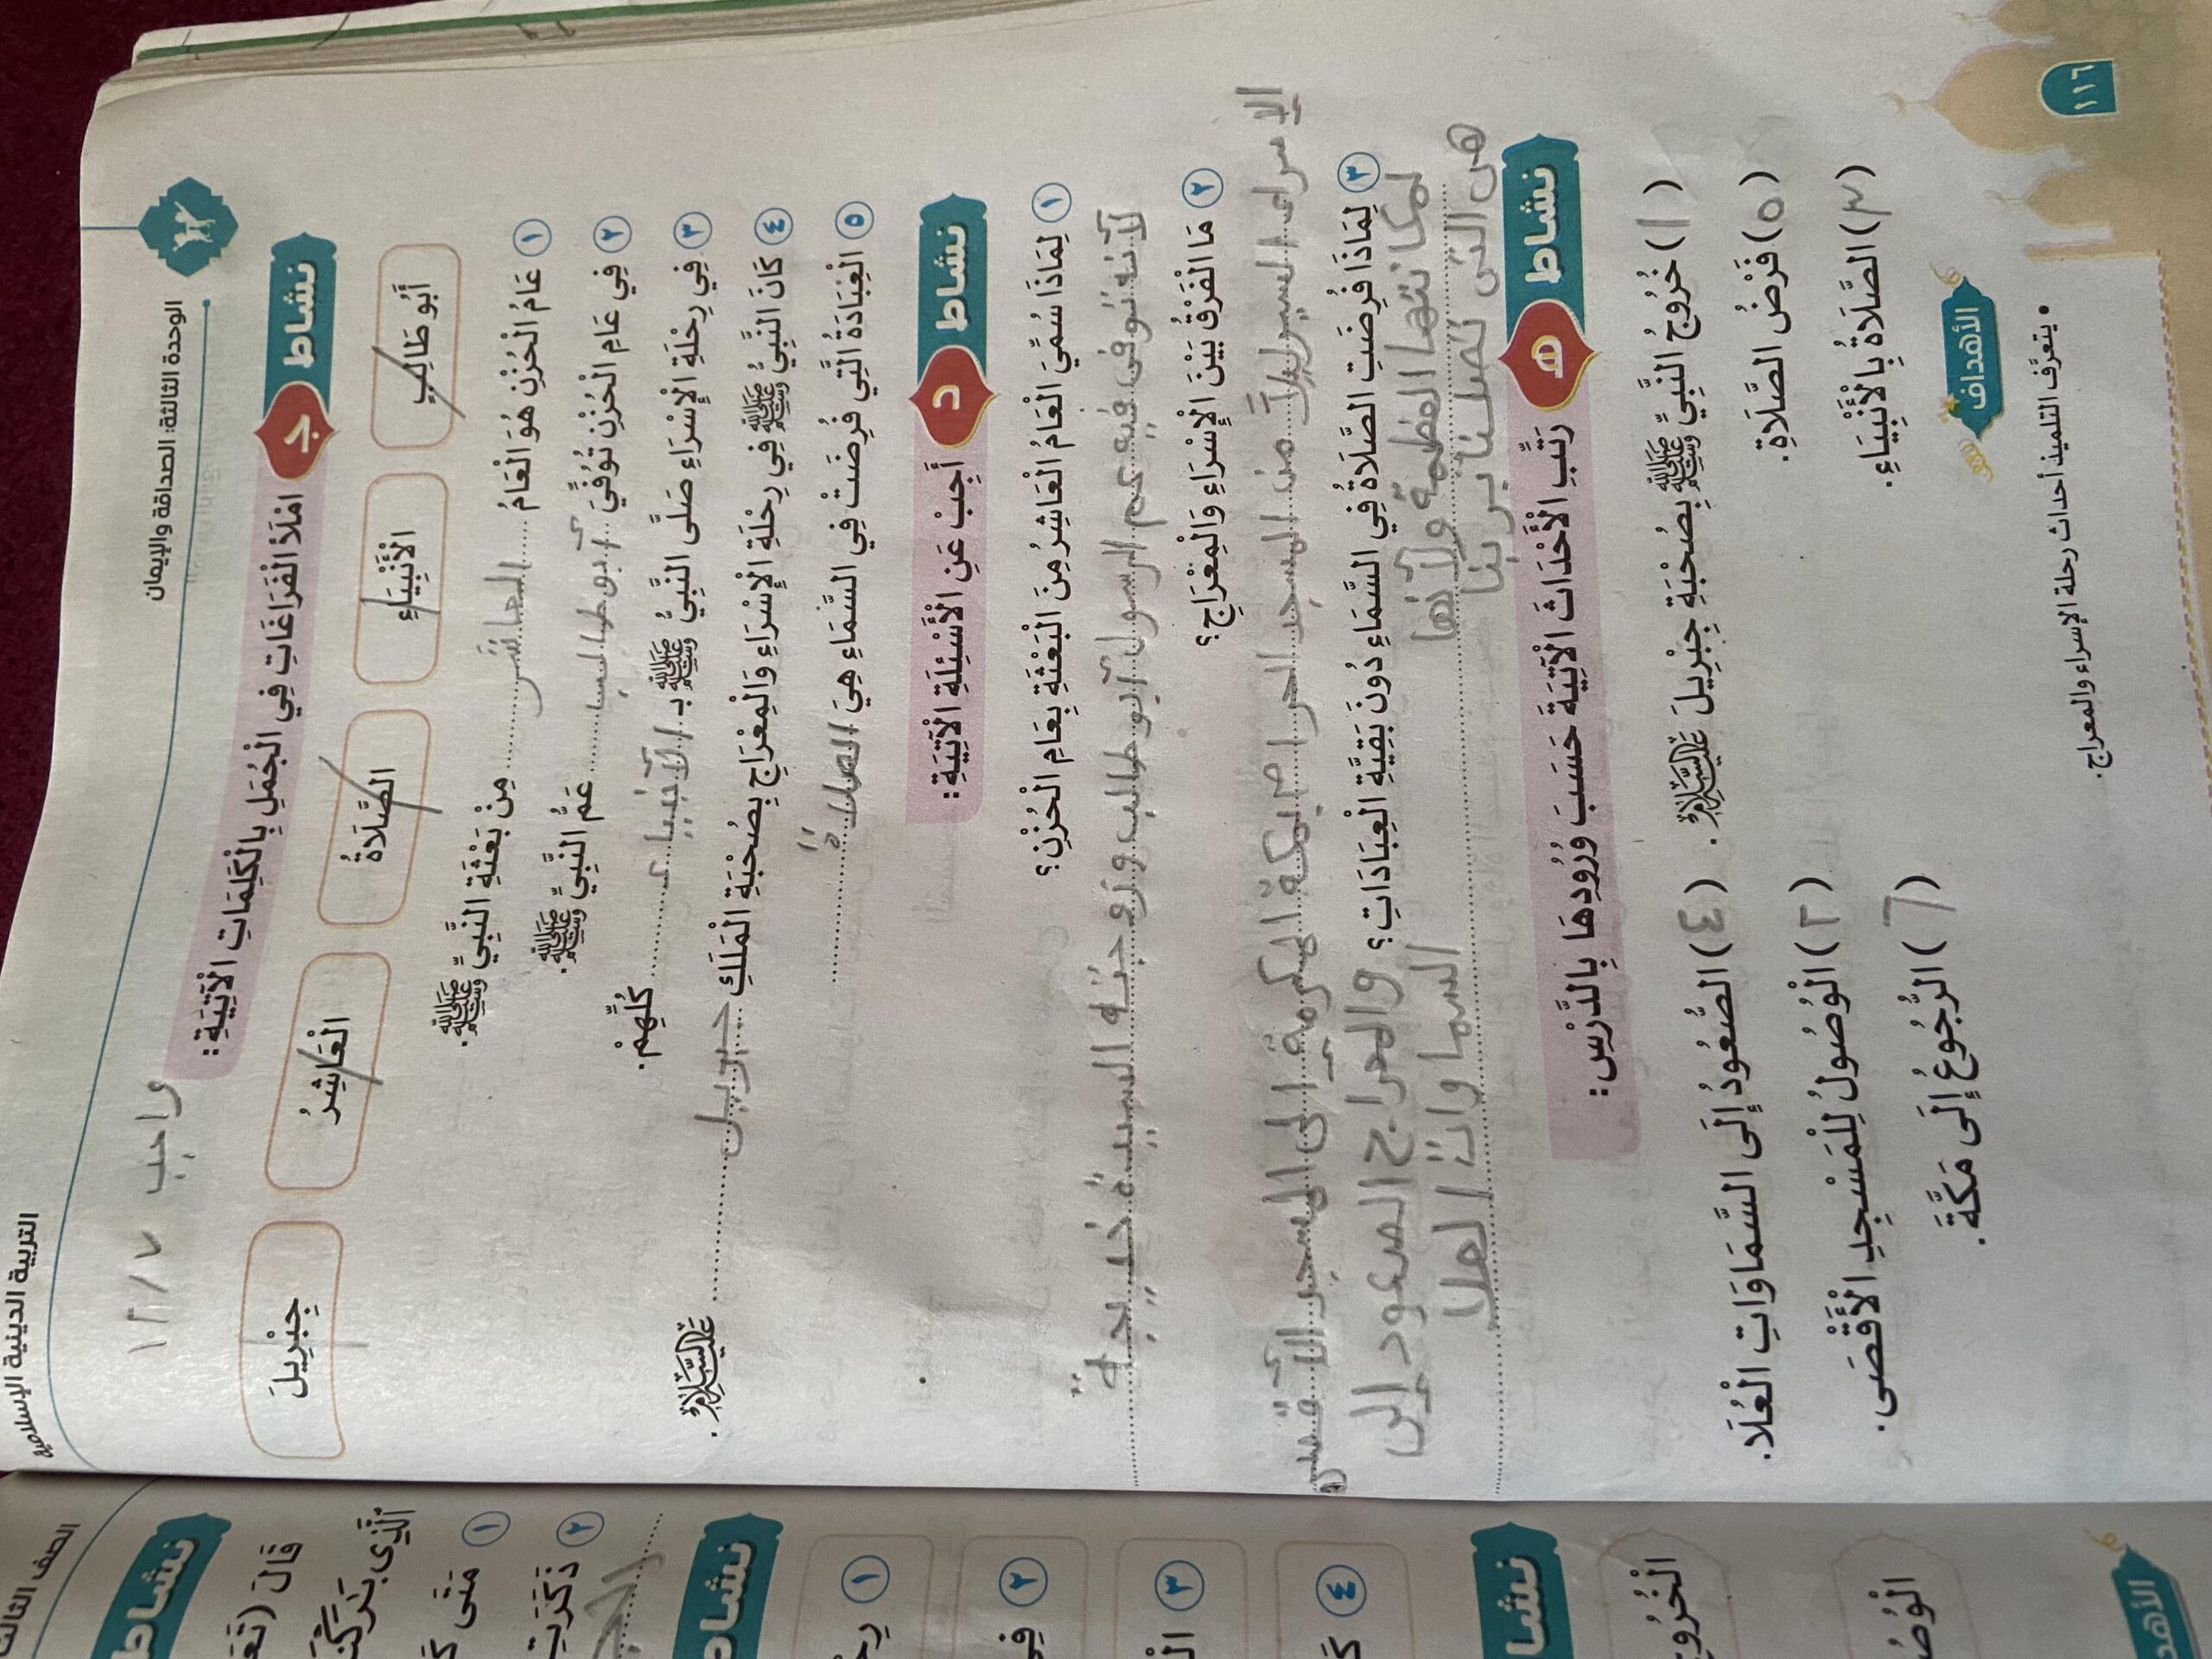 التربية الدينية الإسلامية
الوحدة الثالثة: الصداقة والإيمان
واجب ١٢/٧
نشاط ج امْلَأِ الْفَرَاغَاتِ فِي الْجُمَلِ بِالْكَلِمَاتِ الْآتِيَةِ:
أَبُو طَالِبٍ الْأَنْبِيَاءِ الصَّلَاةُ الْعَاشِرُ جِبْرِيلَ
١ عَامُ الْحُزْنِ هُوَ الْعَامُ العاشر مِنْ بَعْثَةِ النَّبِيِّ ﷺ.
٢ فِي عَامِ الْحُزْنِ تُوُفِّيَ أبو طالب عَمُّ النَّبِيِّ ﷺ.
٣ فِي رِحْلَةِ الْإِسْرَاءِ صَلَّى النَّبِيُّ ﷺ بِـ الأنبياء كُلِّهِمْ.
٤ كَانَ النَّبِيُّ ﷺ فِي رِحْلَةِ الْإِسْرَاءِ وَالْمِعْرَاجِ بِصُحْبَةِ الْمَلَكِ جبريل عَلَيْهِ السَّلَامُ.
٥ الْعِبَادَةُ الَّتِي فُرِضَتْ فِي السَّمَاءِ هِيَ الصلاة
نشاط د أَجِبْ عَنِ الْأَسْئِلَةِ الْآتِيَةِ:
١ لِمَاذَا سُمِّيَ الْعَامُ الْعَاشِرُ مِنَ الْبَعْثَةِ بِعَامِ الْحُزْنِ؟
لأنه توفى فيه عم الرسول أبو طالب وزوجته السيدة خديجة
٢ مَا الْفَرْقُ بَيْنَ الْإِسْرَاءِ وَالْمِعْرَاجِ؟
الإسراء السير ليلاً من المسجد الحرام بمكة المكرمة إلى المسجد الأقصى
والمعراج الصعود إلى
السماوات العلا
٣ لِمَاذَا فُرِضَتِ الصَّلَاةُ فِي السَّمَاءِ دُونَ بَقِيَّةِ الْعِبَادَاتِ؟
لمكانتها العظمة ولأنها
هى التى تصلنا بربنا
نشاط هـ رَتِّبِ الْأَحْدَاثَ الْآتِيَةَ حَسَبَ وُرُودِهَا بِالدَّرْسِ:
(١) خُرُوجُ النَّبِيِّ ﷺ بِصُحْبَةِ جِبْرِيلَ عَلَيْهِ السَّلَامُ. (٤) الصُّعُودُ إِلَى السَّمَاوَاتِ الْعُلَا.
(٥) فَرْضُ الصَّلَاةِ. (٢) الْوُصُولُ لِلْمَسْجِدِ الْأَقْصَى.
(٣) الصَّلَاةُ بِالْأَنْبِيَاءِ. (٦) الرُّجُوعُ إِلَى مَكَّةَ.
الأهداف
• يتعرَّف التلميذ أحداث رحلة الإسراء والمعراج.
١١٦
نشاط
قَالَ
١ مَتَى
٢ ذَكَرَتِ
نشاط
١
٢
٣
٤